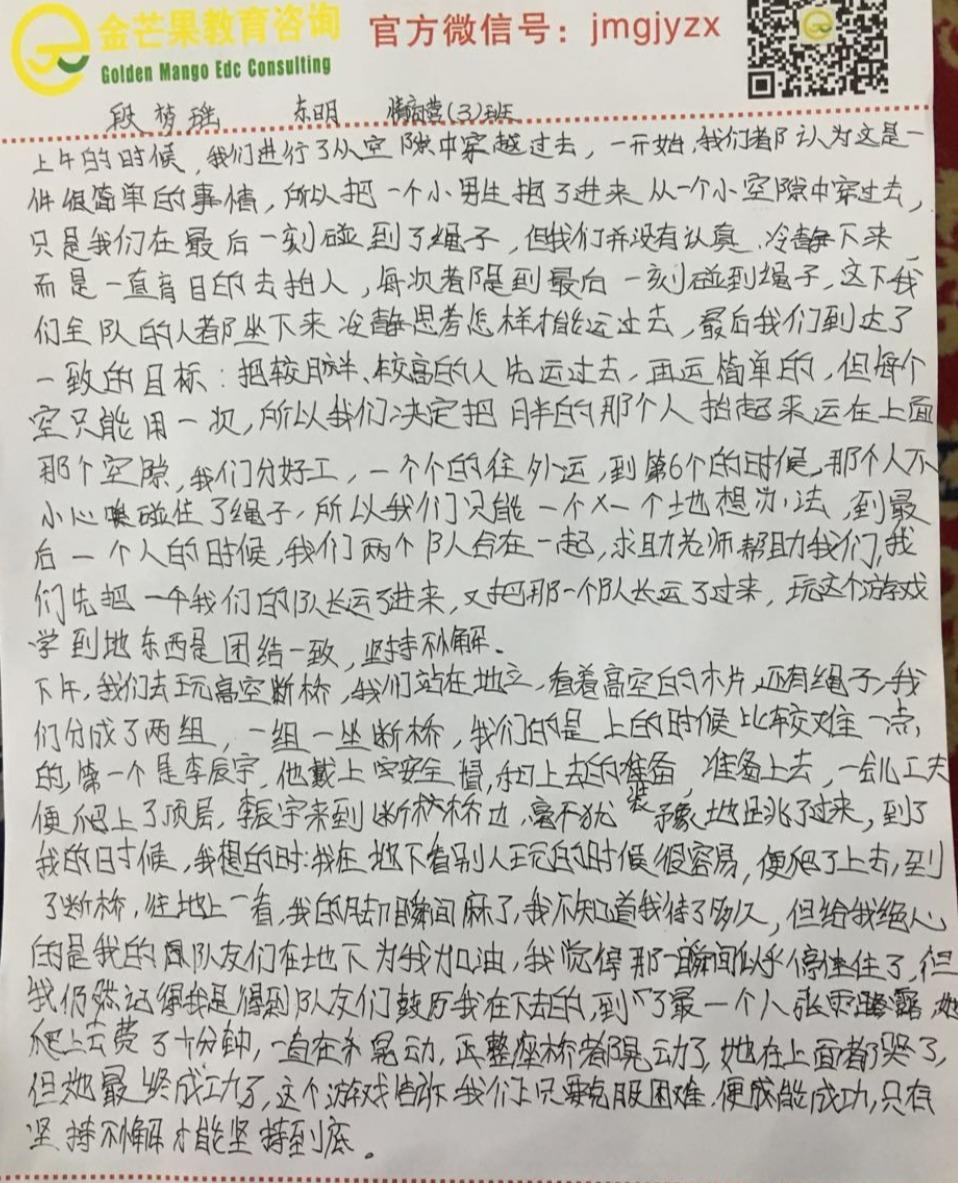 金芒果教育咨询
Golden Mango Edc Consulting
官方微信号：jmgjyzx
段梦瑶 东明 情商营(3)班
上午的时候，我们进行了从空隙中穿越过去，一开始，我们都认为这是一
件很简单的事情，所以把一个小男生抱了进来从一个小空隙中穿过去，
只是我们在最后一刻碰到了绳子，但我们并没有认真、冷静下来，
而是一直盲目的去抬人，每次都是到最后一刻碰到绳子，这下我
们全队的人都坐下来冷静思考怎样才能运过去，最后我们到达了
一致的目标：把较胖、较高的人先运过去，再运简单的，但每个
空只能用一次，所以我们决定把胖的那个人抬起来运在上面
那个空隙，我们分好工，一个个的往外运，到第6个的时候，那个人不
小心碰住了绳子，所以我们只能一个一个地想办法，到最
后一个人的时候，我们两个队合在一起，求助老师帮助我们，我
们先把一个我们的队长运了进来，又把那一个队长运了过来，玩这个游戏
学到地东西是团结一致，坚持不懈。
下午，我们去玩高空断桥，我们站在地立，看着高空的木片，还有绳子，我
们分成了两组，一组一坐断桥，我们的是上的时候比较难一点
的，第一个是李辰宇，他戴上安全帽，和上去的准备，准备上去，一会儿工夫
便爬上了顶层，李辰宇来到断桥桥边，毫不犹豫地跳了过来，到了
我的时候，我想的时：我在地下看别人玩的时候很容易，便爬了上去，到
了断桥，往地上一看，我的脚瞬间麻了，我不知道我待了多久，但给我绝心
的是我的队友们在地下为我加油，我觉得那一瞬间似乎停住了，但
我仍然记得我是得到队友们鼓历我在下去的，到了最一个人张雯露，她
爬上去费了十分钟，一直在晃动，整座桥都晃动了，她在上面都哭了，
但她最终成功了，这个游戏告诉我们只要克服困难，便能成功，只有
坚持不懈才能坚持到底。